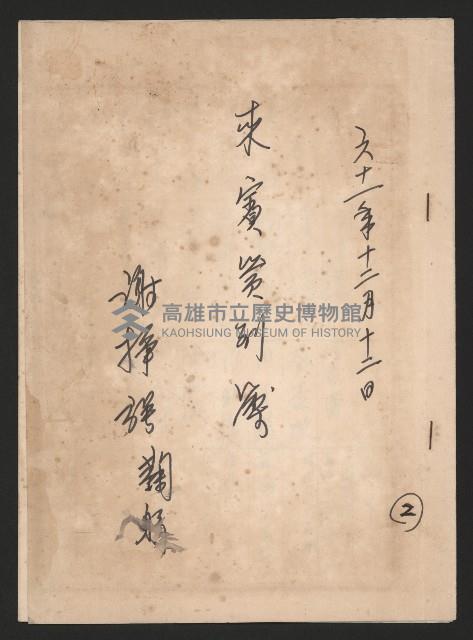 六十一年十二月十二日
來賓簽到簿
謝掙強鞠躬
高雄市立歷史博物館
KAOHSIUNG MUSEUM OF HISTORY
2